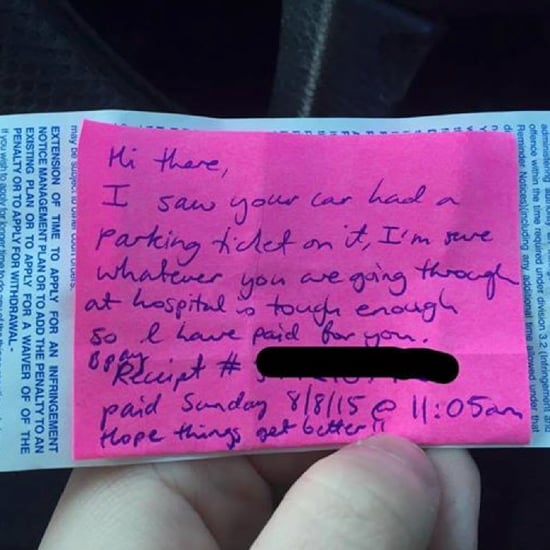 Hi there,
I saw your car had a
parking ticket on it, I'm sure
whatever you are going through
at hospital is tough enough
so I have paid for you.
Bpay
Receipt #
paid Sunday 8/8/15 @ 11:05am
Hope things get better!!
may be subject to other court orders.
EXTENSION OF TIME TO APPLY FOR AN INFRINGEMENT
NOTICE MANAGEMENT PLAN OR TO ADD THE PENALTY TO AN
EXISTING PLAN OR TO APPLY FOR A WAIVER OF OF THE
PENALTY OR TO APPLY FOR WITHDRAWAL-
If you wish to apply for longer time to
administering
offence within the time required under division 3.2 (Infringement
Reminder Notices)(including any additional time allowed under that